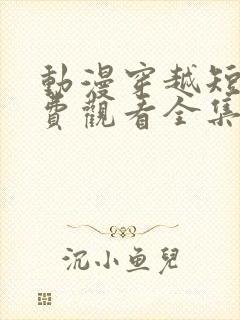 動漫穿越短
費觀看全集
沉小魚兒